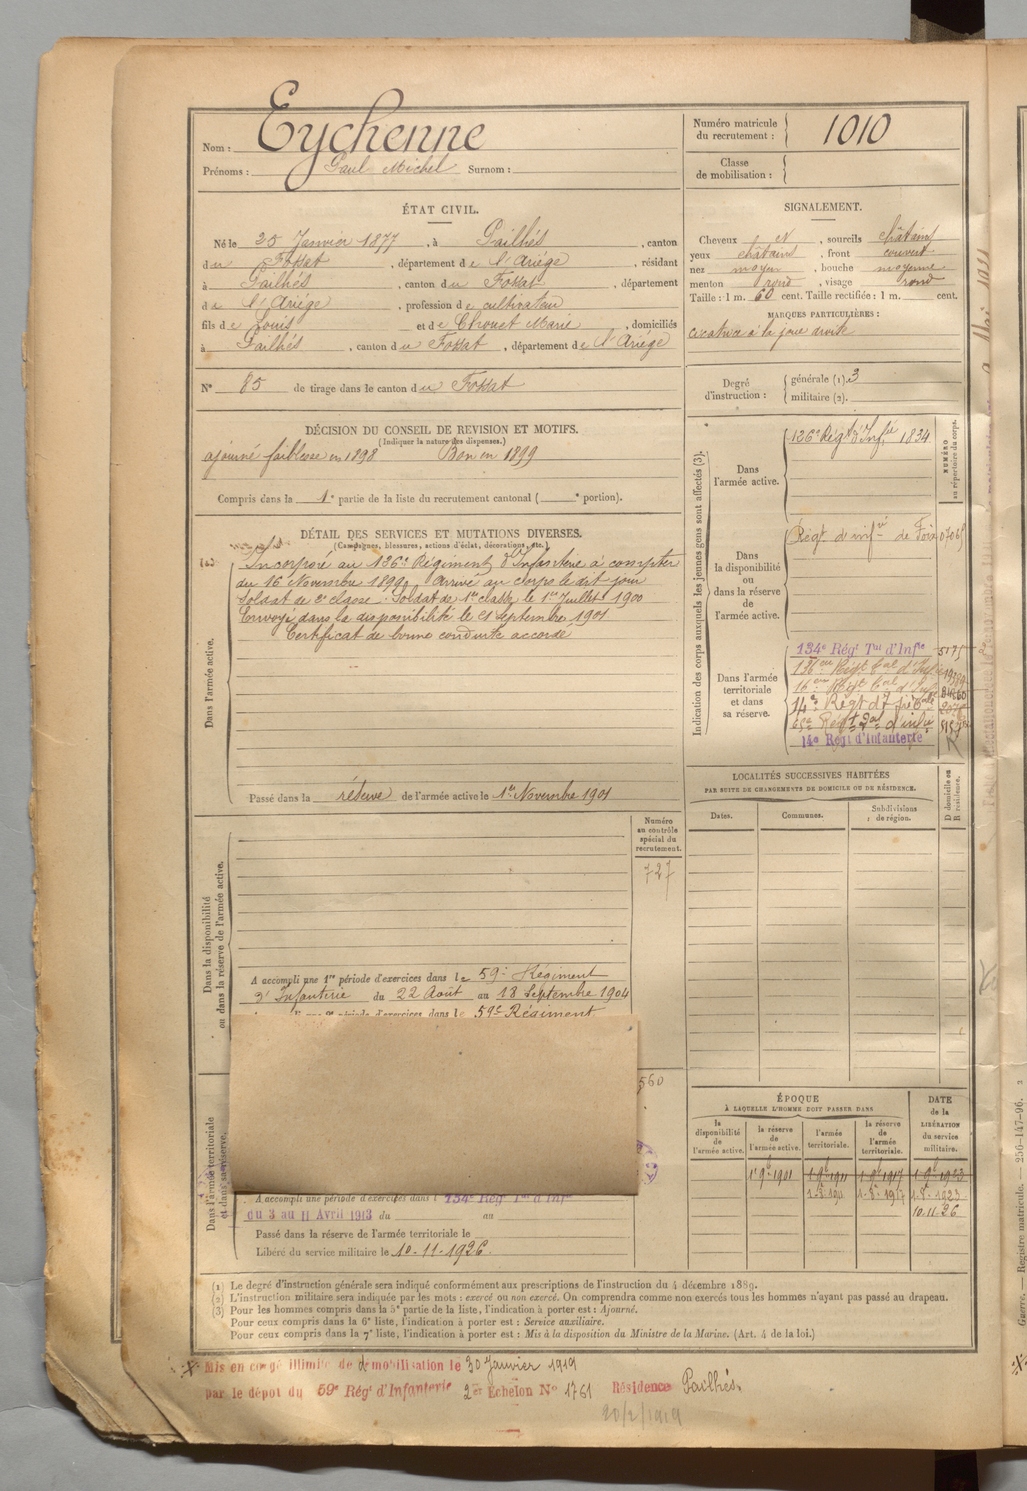 Nom : Eychenne
Prénoms : Paul Michel Surnom :
Numéro matricule du recrutement : 1010
Classe de mobilisation :
ÉTAT CIVIL.
Né le 25 Janvier 1877, à Pailhés, canton
du Fossat, département de l'Ariége, résidant
à Pailhés, canton du Fossat, département
de l'Ariége, profession de cultivateur
fils de Louis et de Chouet Marie, domiciliés
à Pailhés, canton du Fossat, département de l'Ariége
N° 85 de tirage dans le canton du Fossat
SIGNALEMENT.
Cheveux et, sourcils châtains
yeux châtains, front couvert
nez moyen, bouche moyenne
menton rond, visage rond
Taille : 1 m. 60 cent. Taille rectifiée : 1 m. cent.
MARQUES PARTICULIÈRES :
cicatrice à la joue droite
Degré d'instruction : générale (1). 3
militaire (2).
DÉCISION DU CONSEIL DE REVISION ET MOTIFS.
(Indiquer la nature des dispenses.)
ajourné faiblesse en 1898 Bon en 1899
Compris dans la 1e partie de la liste du recrutement cantonal ( e portion).
DÉTAIL DES SERVICES ET MUTATIONS DIVERSES.
(Campagnes, blessures, actions d'éclat, décorations, etc.)
Dans l'armée active.
Incorporé au 126e Régiment d'Infanterie à compter
du 16 Novembre 1899. Arrivé au corps le dit jour
Soldat de 2e classe. Soldat de 1re classe le 1er Juillet 1900
Envoyé dans la disponibilité le 21 septembre 1901
Certificat de bonne conduite accordé
Passé dans la réserve de l'armée active le 1er Novembre 1901
Indication des corps auxquels les jeunes gens sont affectés (3).
NUMÉRO au répertoire du corps.
Dans l'armée active.
126e Régt d'Infie 1834
Dans la disponibilité ou dans la réserve de l'armée active.
Régt d'infie de Foix
Dans l'armée territoriale et dans sa réserve.
134e Régt Tal d'Infie 5175
136me Régt Tal d'Infie
16me Régt Tal d'Infie
14e Régt d'Infie
65e Régt Tal d'infie
14e Régt d'Infanterie
LOCALITÉS SUCCESSIVES HABITÉES
PAR SUITE DE CHANGEMENTS DE DOMICILE OU DE RÉSIDENCE.
D domicile ou R résidence.
Dates. Communes. Subdivisions de région.
Dans la disponibilité ou dans la réserve de l'armée active.
Numéro au contrôle spécial du recrutement.
727
A accompli une 1re période d'exercices dans le 59e Régiment
d'Infanterie du 22 Août au 18 Septembre 1904
période d'exercices dans le 59e Régiment
560
Dans l'armée territoriale et dans sa réserve.
A accompli une période d'exercices dans l 134e Régt Tal d'Infie
du 3 au 11 Avril 1913 du au
Passé dans la réserve de l'armée territoriale le
Libéré du service militaire le 10.11.1926.
ÉPOQUE
À LAQUELLE L'HOMME DOIT PASSER DANS
la disponibilité de l'armée active.
la réserve de l'armée active.
l'armée territoriale.
la réserve de l'armée territoriale.
DATE de la LIBÉRATION du service militaire.
1er 9b 1901 1.9b 1911 1.9b 1917 1.9b 1923
1.8.1911 1.8.1917 1.8.1923
10.11.26
(1) Le degré d'instruction générale sera indiqué conformément aux prescriptions de l'instruction du 4 décembre 1889.
(2) L'instruction militaire sera indiquée par les mots : exercé ou non exercé. On comprendra comme non exercés tous les hommes n'ayant pas passé au drapeau.
(3) Pour les hommes compris dans la 3e partie de la liste, l'indication à porter est : Ajourné.
Pour ceux compris dans la 6e liste, l'indication à porter est : Service auxiliaire.
Pour ceux compris dans la 7e liste, l'indication à porter est : Mis à la disposition du Ministre de la Marine. (Art. 4 de la loi.)
Mis en congé illimité de démobilisation le 30 Janvier 1919
par le dépôt du 59e Régt d'Infanterie 2er Echelon N° 1761 Résidence Pailhés.
20/2/1919
Guerre. — Registre matricule. — 256-147-96.